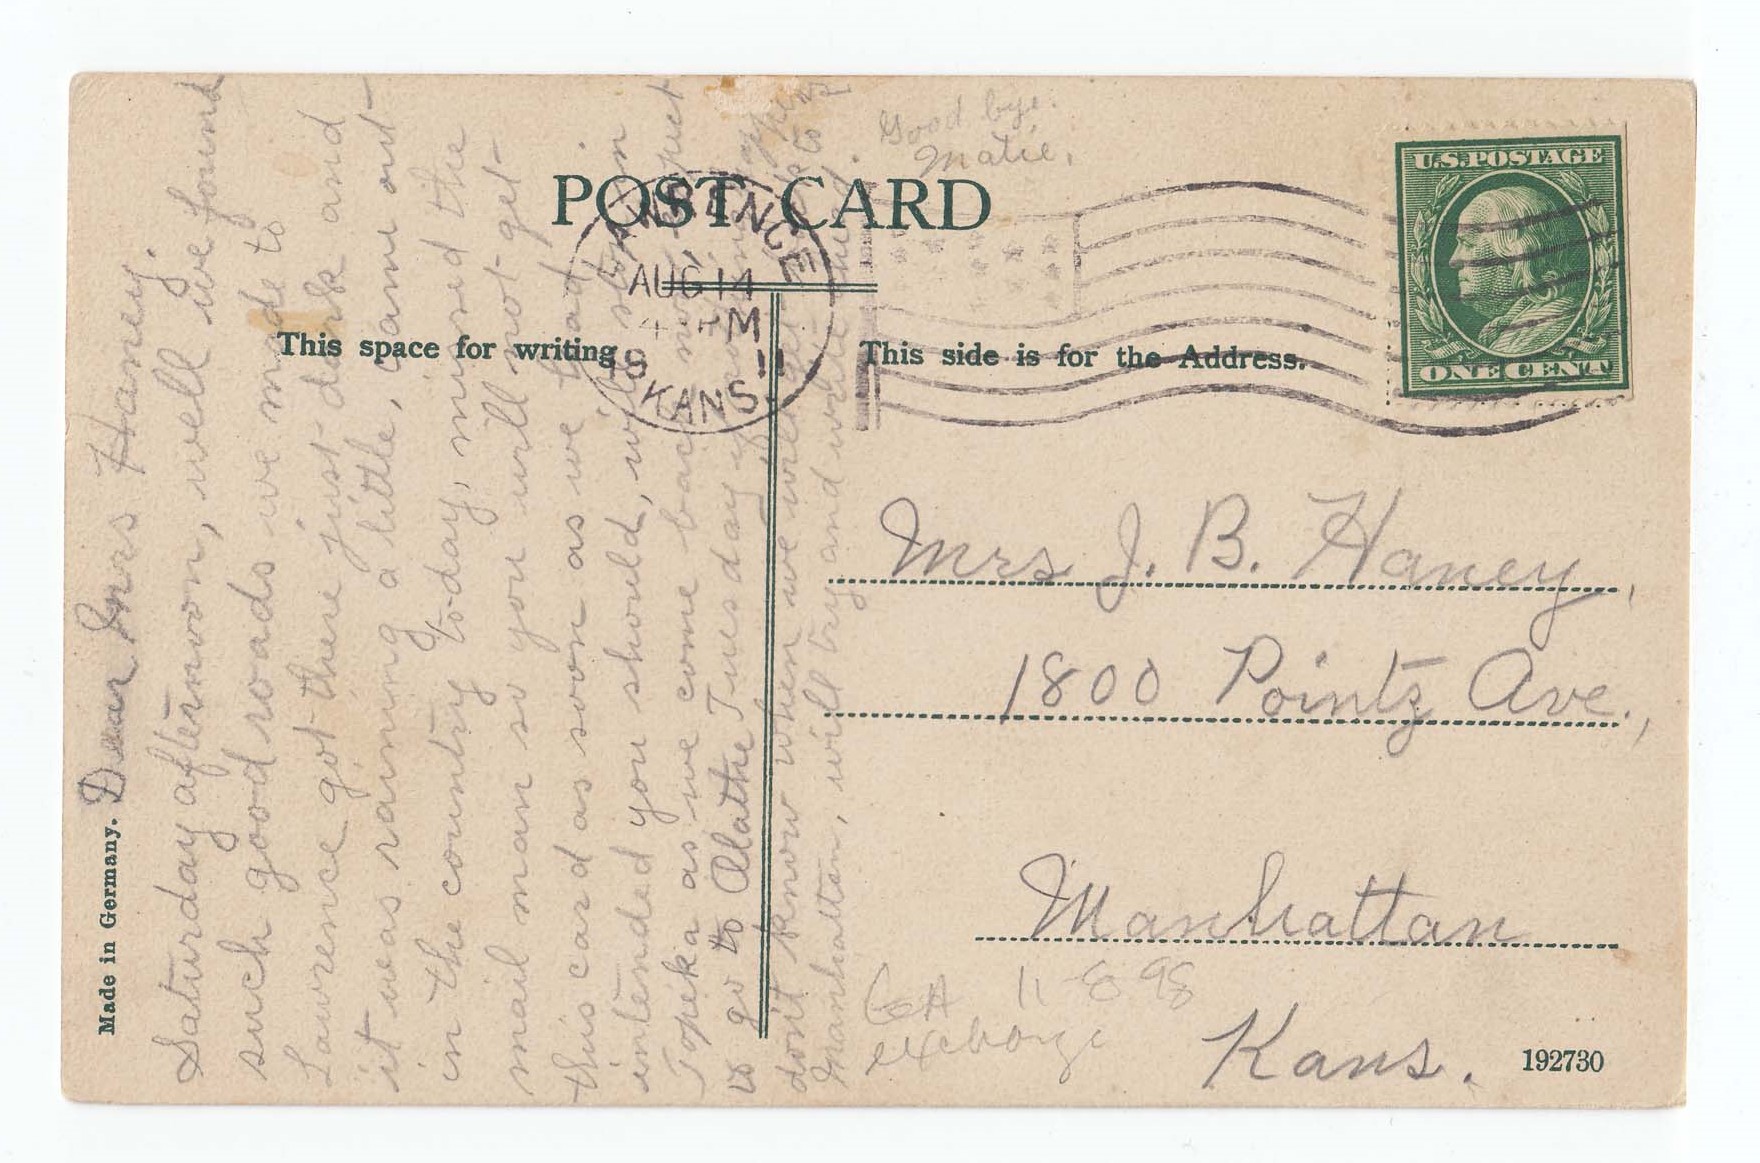 POST CARD
This space for writing
This side is for the Address.
Made in Germany.
U.S. POSTAGE
ONE CENT
LAWRENCE
AUG 14
4 PM
11
KANS.
Dear Mrs Haney.
Saturday afternoon, well we found
such good roads we made to
Lawrence got there just dark and
it was raining a little, came out
in the country to-day, missed the
mail man so you will not get
this card as soon as we had
intended you should, will stop in
Topeka as we come back now, expect
to go to Olathe Tuesday if
don't know when we will get to
Manhattan, will try and write
Good bye.
Matie.
Mrs J. B. Haney,
1800 Pointz Ave.,
Manhattan
Kans.
11-8-98
192730